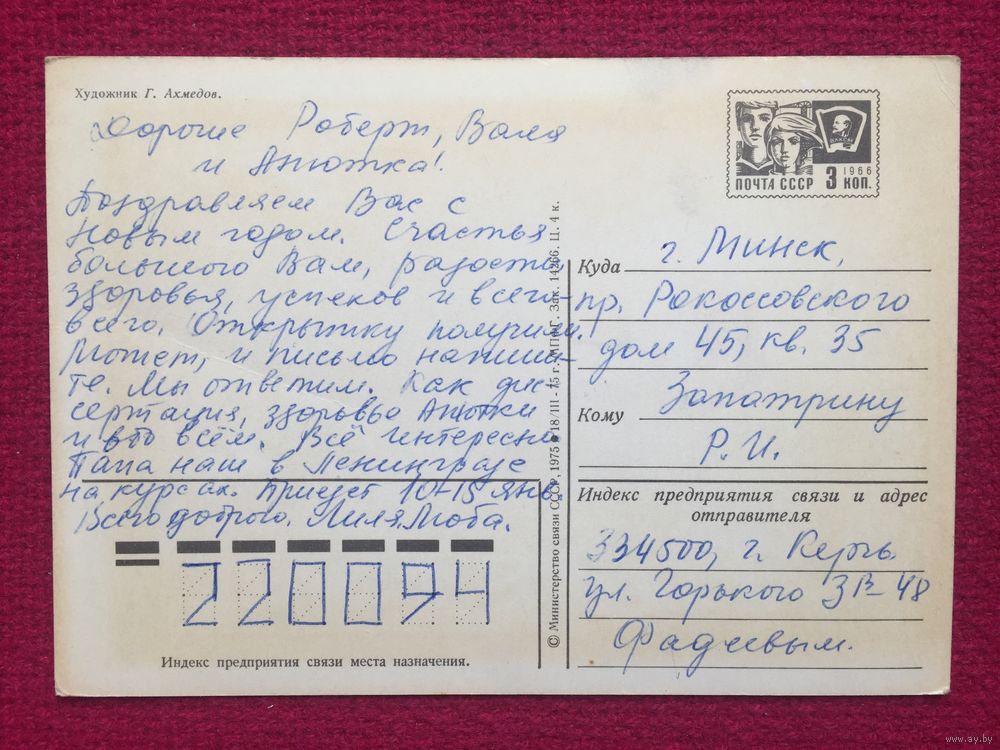 Художник Г. Ахмедов.
Дорогие Роберт, Валя
и Анютка!
Поздравляем Вас с
Новым годом. Счастья
большого Вам, радости
здоровья, успехов и всего-
всего. Открытку получили.
Может, и письмо напиши-
те. Мы ответим. Как дис
сертация, здоровье Анютки
и обо всём. Всё интересно
Папа наш в Ленинграде
на курсах. Приедет 10-15 янв.
Всего доброго. Лиля, Люба.
220094
Индекс предприятия связи места назначения.
© Министерство связи СССР, 1975 18/III - 75 г. МПФГ. Зак. 14266. Ц. 4 к.
1966
ПОЧТА СССР 3 КОП.
ВЛКСМ
Куда г. Минск,
пр. Рокоссовского
дом 45, кв. 35
Кому Запатрину
Р. И.
Индекс предприятия связи и адрес
отправителя
334500, г. Керчь
ул. Горького 3В-48
Фадеевым.
www.ay.by